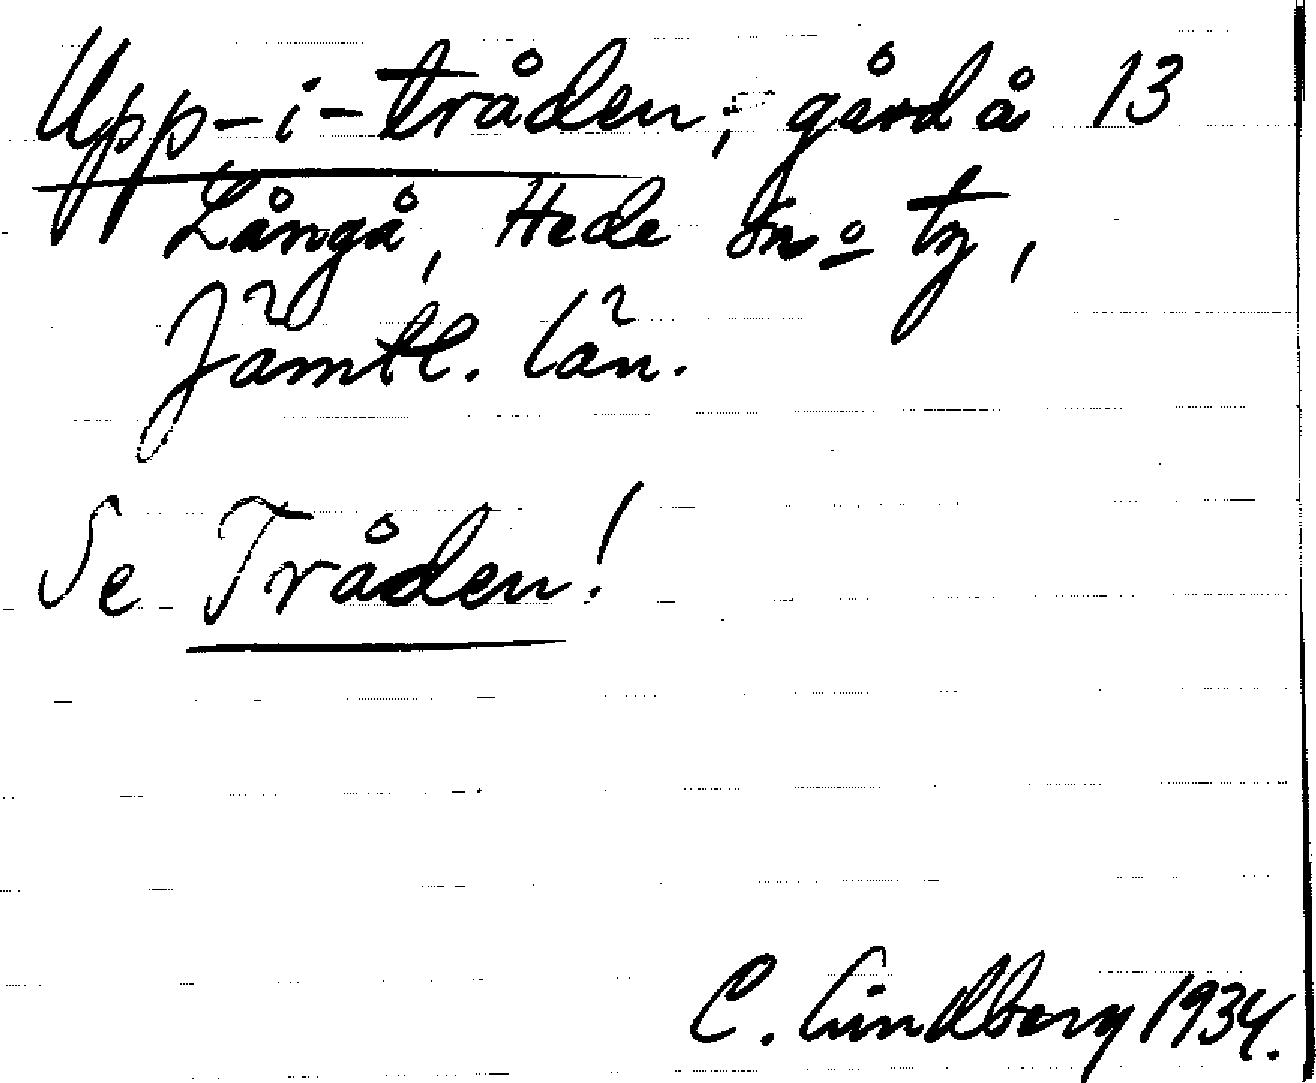 Upp-i-tråden, gård å 13
Långå, Hede sn o ty,
Jämtl. län.
Se Tråden!
C. Lindberg 1934.